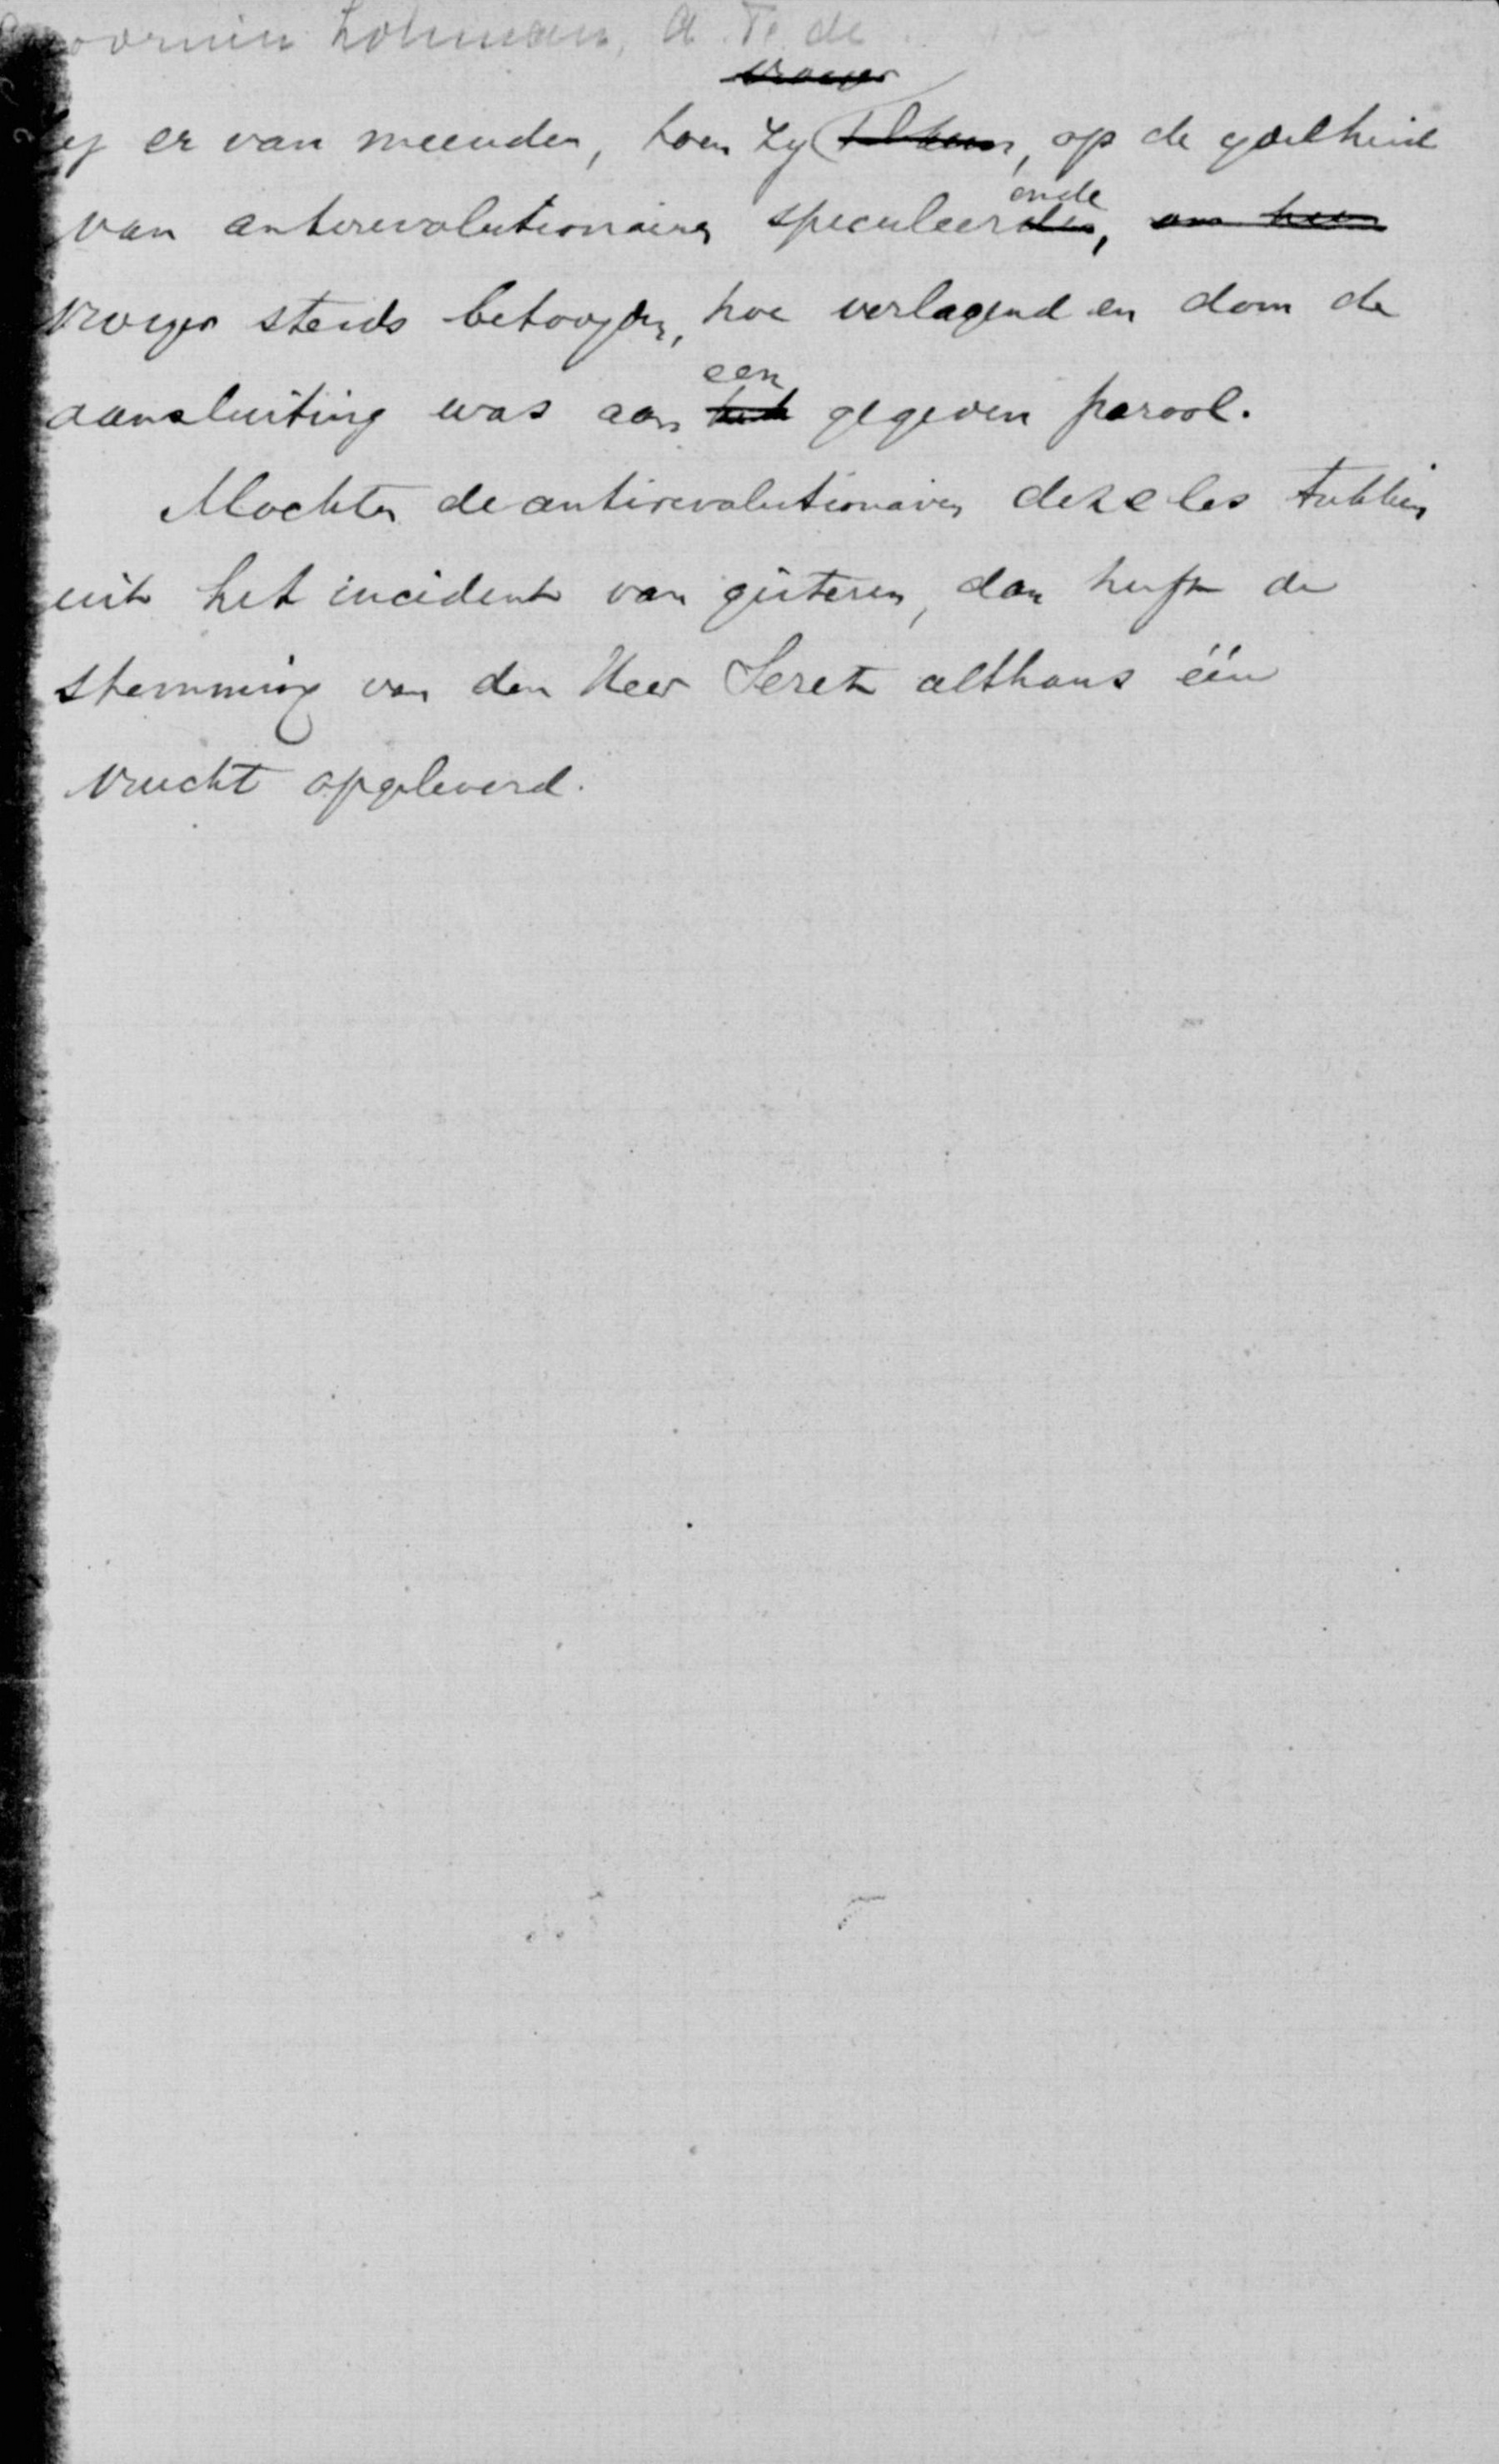 Lohman, A. F. de
vroeger
zij er van meenden, toen zij , op de goedheid
van antirevolutionairen speculeerden, om hen
ende
vroeger steeds betoogden, hoe verlagend en dom de
aansluiting was aan het gegeven parool.
een
Mochten de antirevolutionairen deze les trekken
uit het incident van gisteren, dan heeft de
stemming van den Heer Seret althans één
vrucht opgeleverd.